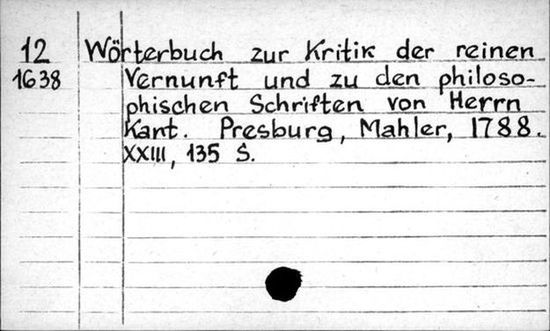 12 Wörterbuch zur Kritik der reinen
1638 Vernunft und zu den philoso-
phischen Schriften von Herrn
Kant. Presburg, Mahler, 1788.
XXIII, 135 S.